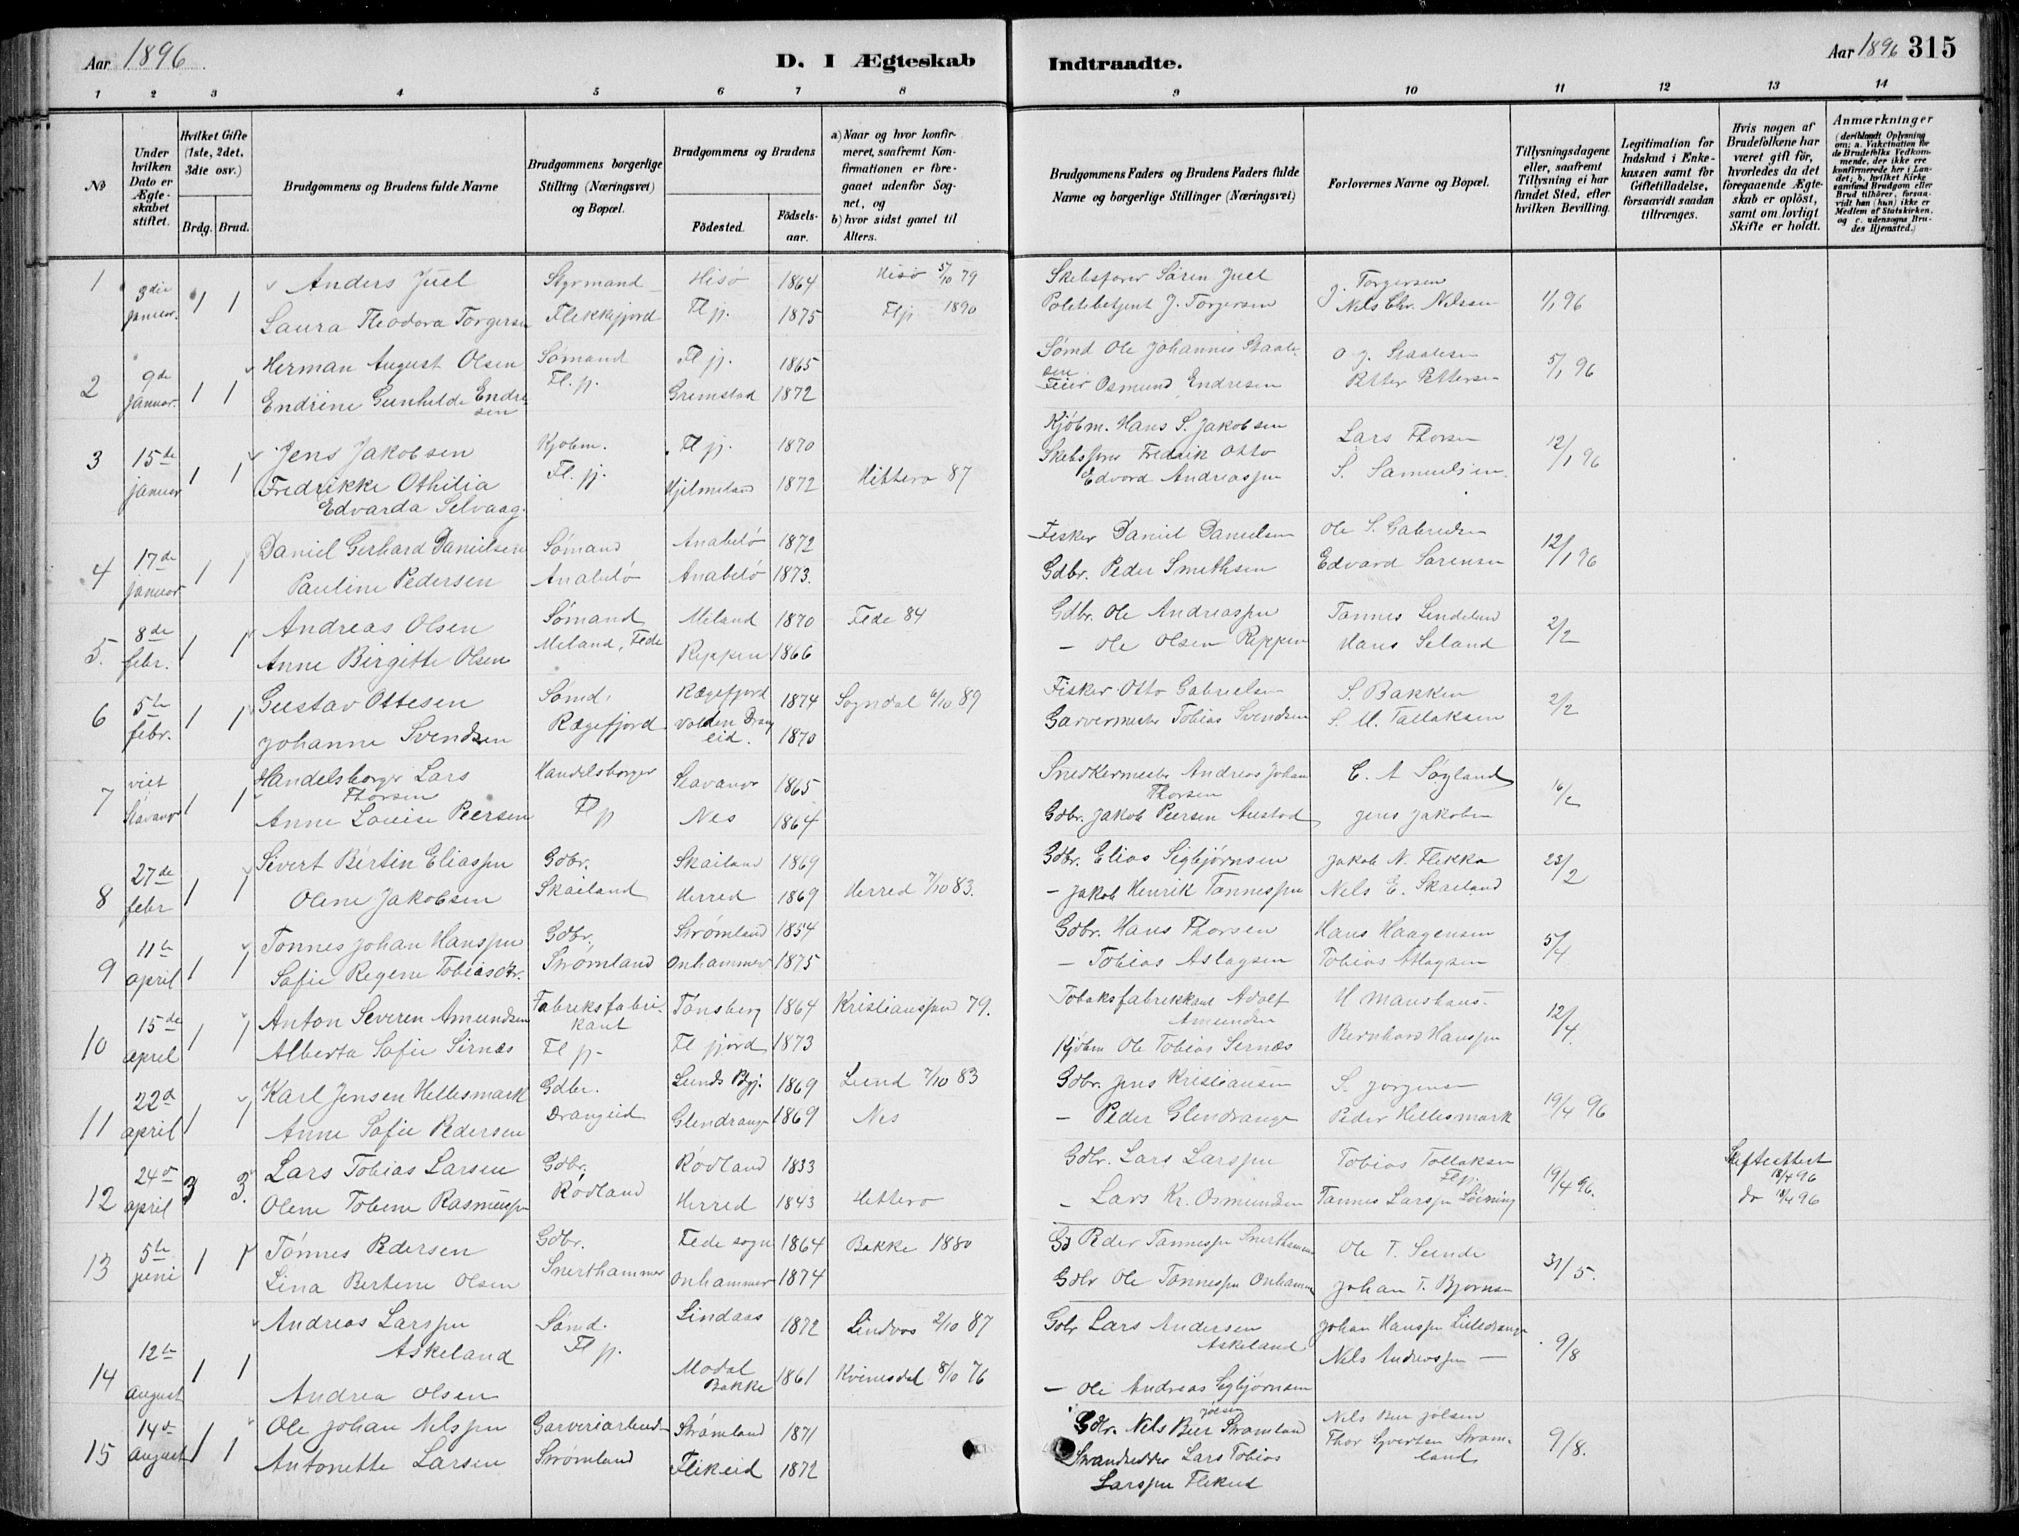 Aar 1896
D. I Ægteskab Indtraadte.
Aar 1896 315
1 2 3 4 5 6 7 8 9 10 11 12 13 14
No
Under hvilken Dato er Ægteskabet stiftet.
Hvilket Gifte (1ste, 2det, 3die osv.)
Brdg. Brud.
Brudgommens og Brudens fulde Navne
Brudgommens borgerlige Stilling (Næringsvei) og Bopæl.
Brudgommens og Brudens
Födested.
Födselsaar.
a) Naar og hvor konfirmeret, saafremt Konfirmationen er foregaaet udenfor Sognet, og
b) hvor sidst gaael til Alters.
Brudgommens Faders og Brudens Faders fulde Navne og borgerlige Stillinger (Næringsvei)
Forlovernes Navne og Bopæl.
Tillysningsdagene eller, saafremt Tillysning ei har fundet Sted, efter hvilken Bevilling.
Legitimation for Indskud i Enkekassen samt for Giftetilladelse, forsaavidt saadan tiltrænges.
Hvis nogen af Brudefolkene har været gift för, hvorledes da det foregaaende Ægteskab er oplöst, samt om lovligt Skifte er holdt.
Anmærkninger (deriblandt Oplysning om: a. Vakcination for de Brudefolks Vedkommende, der ikke ere konfirmerede her i Landet; b. hvilket Kirkesamfund Brudgom eller Brud tilhörer, forsaavidt han (hun) ikke er Medlem af Statskirken, og c. udensogns Brudes Hjemsted.)
1 3die Januar. 1 1 Anders Juel Styrmand Hisö 1864 Hisö 5/10 79 Skibsförer Sören Juel J. Torgersen 1/1 96
Laura Theodora Torgersen Flekkefjord Fl.fj. 1875 Flfj 1890 Politibetjent J. Torgersen Nels Chr. Nilssen
2 9de Januar. 1 1 Herman August Olsen Sömand Fl.fj. 1865 Sömd Ole Johannis Staalesen O J. Staalesen 5/1 96
Endrine Gunhilde Endresen Fl.fj. Grimstad 1872 Feier Osmund Endresen Petter Pettersen
3 15de januar 1 1 Jens Jakobsen Kjöbm. Fl.fj. 1870 Kjöbm. Hans S. Jakobsen Lars Thorsen 12/1 96
Fredrikke Othilia Edvarda Selvaag. Fl.fj. Hjelmeland 1872 Hitterö 87 Skibsförer Fredrik Otto Edvard Andreassen S. Samuelsen
4 17de januar 1 1 Daniel Gerhard Danielsen Sömand Anabelö 1872 Fisker Daniel Danielsen Ole S. Gabrielsen 12/1 96
Pauline Pedersen Anabelö Anabelö 1873. Gdbr. Peder Smethsen Edvard Sörensen
5. 8de febr. 1 1 Andreas Olsen Sömand Miland 1870 Fede 84 Gdbr. Ole Andreassen Tønnes Lindeland 2/2
Anne Birgitte Olsen Meland, Fede Reppen 1866 – Ole Olsen Reppen Hans Seland
6 5te febr. 1 1 Gustav Ottesen Sömd. Rægefjord 1874 Sogndal 6/10 89 Fisker Otto Gabrielsen S. Bakken 2/2
Johanne Svendsen Rægefjord Volden Drangeid. 1870 Garvermester Tobias Svendsen S. M. Tallaksen
7 viet Stavanger 1 1 Handelsborger Lars Thorsen Handelsborger Stavanger 1865 Snedkermester Andreas Johan Thorsen C. A Søyland 16/2
Anne Lovise Peersen Fl fj Nes 1864 Gdbr. Jakob Peersen Austad Jens Jakobsen
8 27de febr 1 1 Sivert Bertin Eliassen Gdbr. Skailand 1869 Gdbr. Elias Sigbjörnsen Jakob N. Flikka 23/2
Olene Jakobsen Skailand Herred 1869 Herred 7/10 83. – Jakob Henrik Tønnessen Nels E. Skailand
9 11te april 1 1 Tonnes Johan Hanssen Gdbr. Strömland 1854 Gdbr. Hans Thorsen Hans Haagensen 5/4
Safie Regene Tobiasdtr. Strömland Onhammer 1875 – Tobias Aslagsen Tobias Aslagsen
10 15de april 1 1 Anton Severen Amundsen Fabriksfabrikant Tönsberg 1864 Kristianssund 79. Tobaksfabrikkant Adolf Amundsen H Manshaus 12/4.
Alberta Sofie Sirnæs Fl fj. Fl fjord 1873 Kjöbm Ole Tobias Sirnæs Bernhard Hanssen
11 22d april 1 1 Karl Jensen Hellesmark Gdbr. Lunds Bgj. 1869 Lund 7/10 83 Gdbr. Jens Kristiansen S. Jorgensen 19/4 96
Anne Sofie Pedersen Drangeid Glendrange 1869 Nes – Peder Glendrange Peder Hellesmark
12 24de april 3 3. Lars Tobias Larsen Gdbr. Rödland 1833 Gdbr. Lars Larssen Tobias Tollaksen Flfj. 19/4 96. Skifteattest 18/4 96
Olene Tobene Rasmussen Rödland Herred 1843 Hitterö – Lars Kr. Osmundsen Tønnes Larssen Löivning do 18/4 96
13 5te juni 1 1 Tönnes Pedersen Gdbr. Fede sogn 1864 Bakke 1880 Gd Peder Tønnessen Snerthammer Ole T. Sunde 31/5.
Lina Bertene Olsen Snerthammer Onhammer 1874 Gdbr Ole Tønnessen Onhammer Johan T. Bjornsen
14 12te August 1 1 Andreas Larssen Askeland Sömd. Lindaas 1872 Lindaas 2/10 87 Gdbr Lars Andersen Askeland Johan Hanssen Lilledrange 9/8
Andrea Olsen Fl fj. Modal Bakke 1861 Kvinesdal 8/10 76 – Ole Andreas Sigbjörnsen Nils Andreassen –
15 14de August 1 1 Ole Johan Nelssen Garveriarbeider Strömland 1871 Gdbr. Nels Bur Jølsen Strømland Nils Bur Jölsen 9/8.
Antonette Larsen Strømland Flikeid 1872 Strandsidder Lars Tobias Larssen Flikeid Thor Syvertsen Strømland